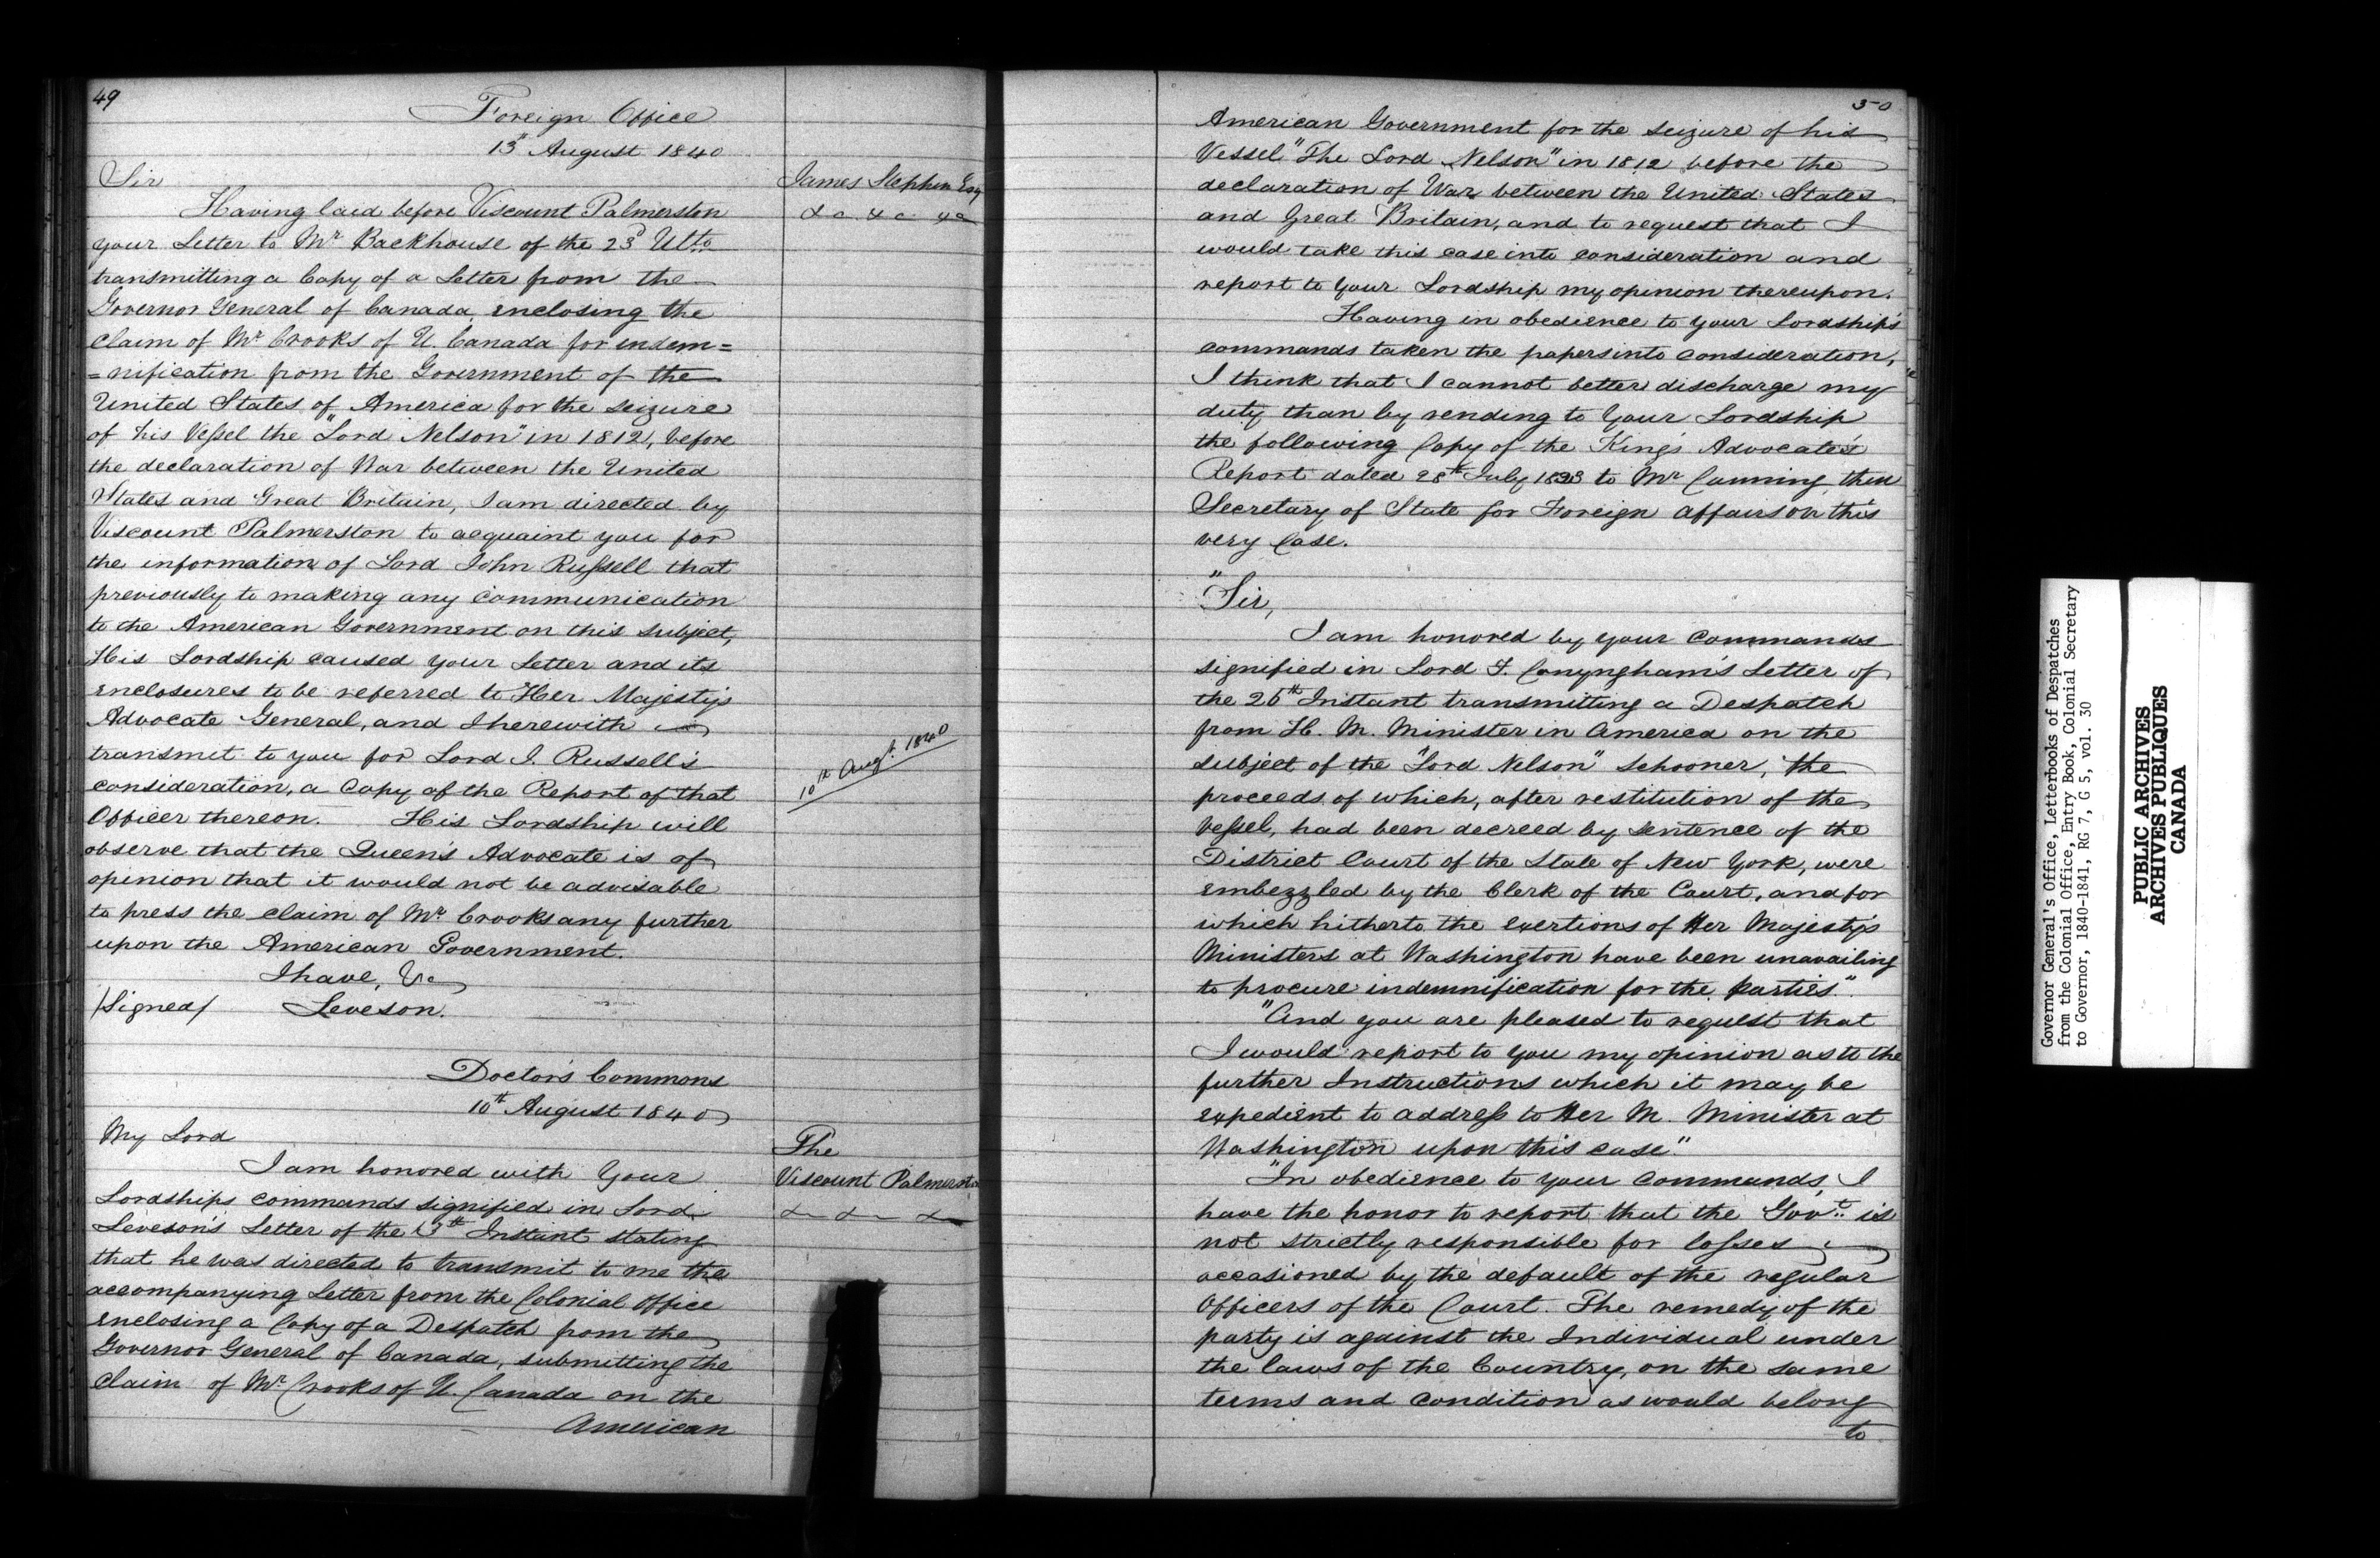 49
Foreign Office
13th August 1840
Sir
James Stephen Esq
&c &c &c
Having laid before Viscount Palmerston
your Letter to Mr Backhouse of the 23d Ulto
transmitting a Copy of a Letter from the
Governor General of Canada, enclosing the
claim of Mr Crooks of U. Canada for indem=
=nification from the Government of the
United States of America for the seizure
of his Vessel the "Lord Nelson" in 1812, before
the declaration of War between the United
States and Great Britain, I am directed by
Viscount Palmerston to acquaint you for
the information of Lord John Russell that
previously to making any communication
to the American Government on this subject,
His Lordship caused your Letter and its
enclosures to be referred to Her Majesty's
Advocate General, and I herewith
transmit to you for Lord J. Russell's
consideration, a Copy of the Report of that
10th Augt 1840
Officer thereon. His Lordship will
observe that the Queen's Advocate is of
opinion that it would not be advisable
to press the claim of Mr Crooks any further
upon the American Government.
I have, &c
/Signed/ Leveson.
Doctors Commons
10th August 1840
My Lord
The
Viscount Palmerston
&c &c &c
I am honored with Your
Lordships commands signified in Lord
Leveson's Letter of the Instant stating
that he was directed to transmit to me the
accompanying Letter from the Colonial Office
enclosing a Copy of a Despatch from the
Governor General of Canada, submitting the
claim of Mr Crooks of U. Canada on the
American
50
American Government for the seizure of his
Vessel "The Lord Nelson" in 1812 before the
declaration of War between the United States
and Great Britain, and to request that I
would take this case into consideration and
report to Your Lordship my opinion thereupon.
Having in obedience to your Lordship's
commands taken the papers into consideration,
I think that I cannot better discharge my
duty than by sending to Your Lordship
the following Copy of the King's Advocate's
Report dated 28th July 1823 to Mr Canning then
Secretary of State for Foreign Affairs on this
very Case.
"Sir,
I am honored by your commands
signified in Lord F. Conyngham's Letter of
the 26th Instant transmitting a Despatch
from H. M. Minister in America on the
subject of the "Lord Nelson" Schooner, "the
proceeds of which, after restitution of the
Vessel, had been decreed by sentence of the
District Court of the State of New York, were
embezzled by the Clerk of the Court, and for
which hitherto the exertions of Her Majesty's
Ministers at Washington have been unavailing
to procure indemnification for the parties".
"And you are pleased to request that
I would report to you my opinion as to the
further Instructions which it may be
expedient to address to Her M. Minister at
Washington upon this case."
"In obedience to your commands, I
have the honor to report that the Govt is
not strictly responsible for losses
occasioned by the default of the regular
Officers of the Court. The remedy of the
party is against the Individual under
the laws of the Country, on the same
terms and condition as would belong
to
Governor General's Office, Letterbooks of Despatches
from the Colonial Office, Entry Book, Colonial Secretary
to Governor, 1840-1841, RG 7, G 5, vol. 30
PUBLIC ARCHIVES
ARCHIVES PUBLIQUES
CANADA